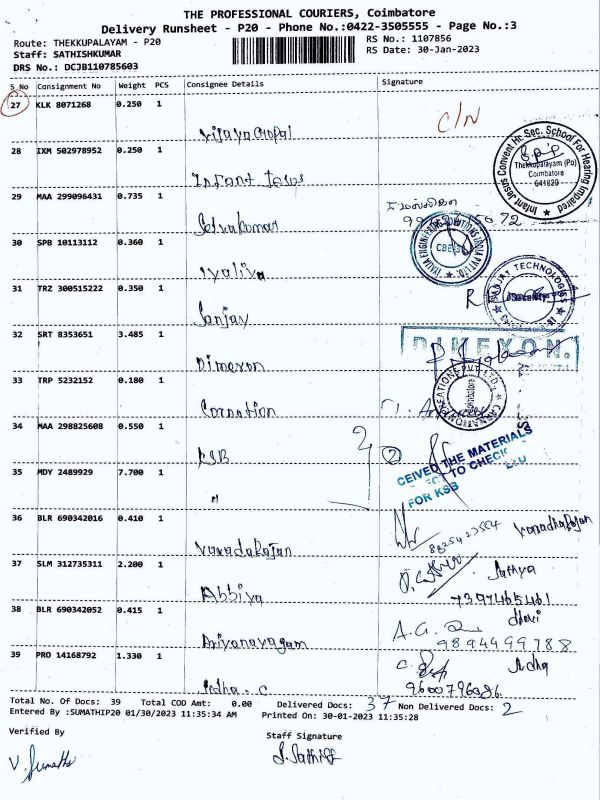 THE PROFESSIONAL COURIERS, Coimbatore
Delivery Runsheet - P20 - Phone No.:0422-3505555 - Page No.:3
Route: THEKKUPALAYAM - P20
RS No.: 1107856
Staff: SATHISHKUMAR
RS Date: 30-Jan-2023
DRS No.: DCJB110785603
S No Consignment No Weight PCS Consignee Details Signature
27 KLK 8071268 0.250 1
Vijayagopal C/N
28 IXM 502978952 0.250 1
Infant Jesus
Infant Jesus Convent Hr. Sec. School For Hearing Impaired
Thekkupalayam (Po)
Coimbatore
641020
29 MAA 299096431 0.735 1
Selvakumar
30 SPB 10113112 0.360 1
Ivaliya
31 TRZ 300515222 0.350 1
Sanjay
SANJAY TECHNOLOGIES
32 SRT 8353651 3.485 1
Dimexon
DIMEXON
33 TRP 5232152 0.180 1
Cornation
34 MAA 298825608 0.550 1
KSB 2
CEIVED THE MATERIALS
TO CHECK
FOR KSB
35 MDY 2489929 7.700 1
"
36 BLR 690342016 0.410 1
Varadarajan 8825423554 Varadharajan
37 SLM 312735311 2.200 1
Abbiya Sathya
7397465461
38 BLR 690342052 0.415 1
Arivanayagam Devi
9894499788
39 PRO 14168792 1.330 1
Radha - C Radha
9600796986
Total No. Of Docs: 39 Total COD Amt: 0.00 Delivered Docs: 37 Non Delivered Docs: 2
Entered By :SUMATHIP20 01/30/2023 11:35:34 AM Printed On: 30-01-2023 11:35:28
Verified By
Staff Signature
V. Sumathi
S. Sathish